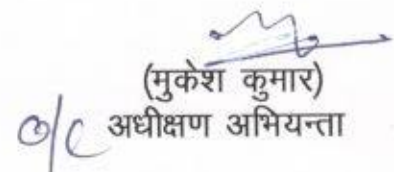 (मुकेश कुमार)
o/c अधीक्षण अभियन्ता